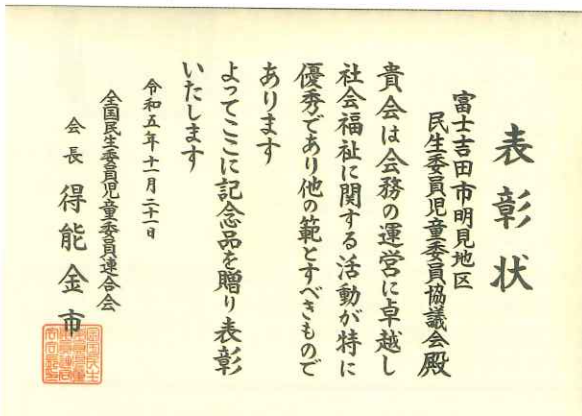 表彰状
富士吉田市明見地区
民生委員児童委員協議会殿
貴会は会務の運営に卓越し
社会福祉に関する活動が特に
優秀であり他の範とすべきもので
あります
よってここに記念品を贈り表彰
いたします
令和五年十一月二十一日
全国民生委員児童委員連合会
会長 得能金市